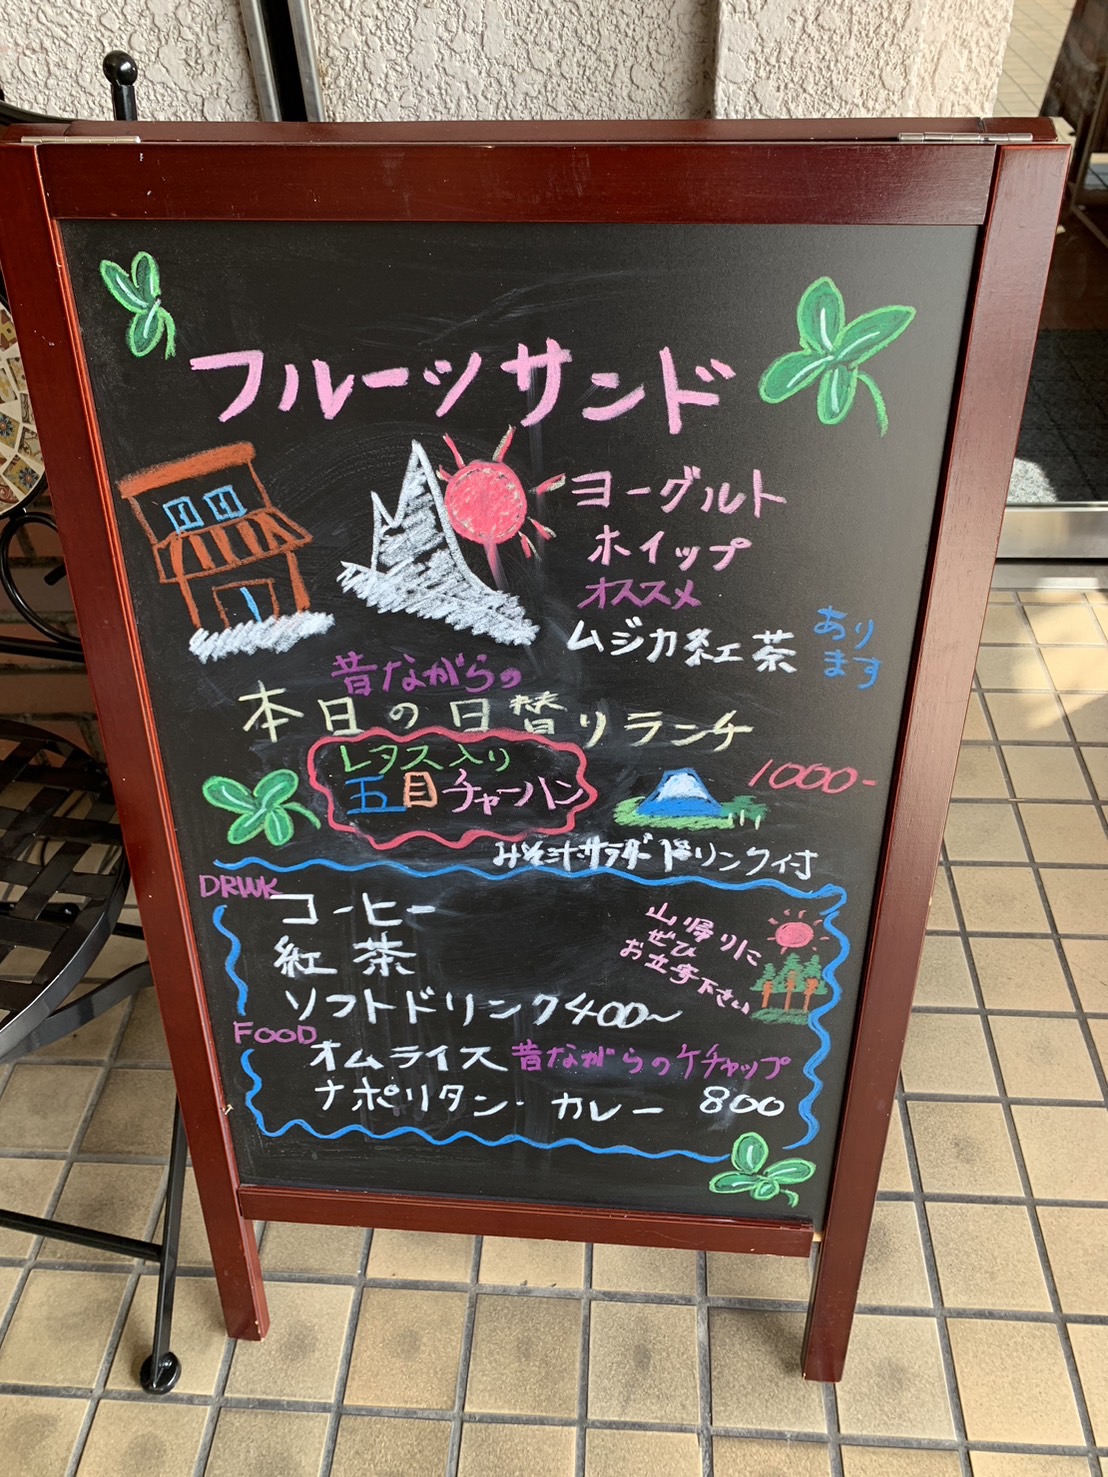 フルーツサンド
ヨーグルト
ホイップ
オススメ
ムジカ紅茶
あり
ます
昔ながらの
本日の日替りランチ
レタス入り
五目チャーハン
1000-
みそ汁サラダドリンク付
DRINK
コーヒー
紅茶
ソフトドリンク400~
山帰りに
ぜひ
お立寄下さい
FOOD
オムライス 昔ながらのケチャップ
ナポリタン・カレー 800